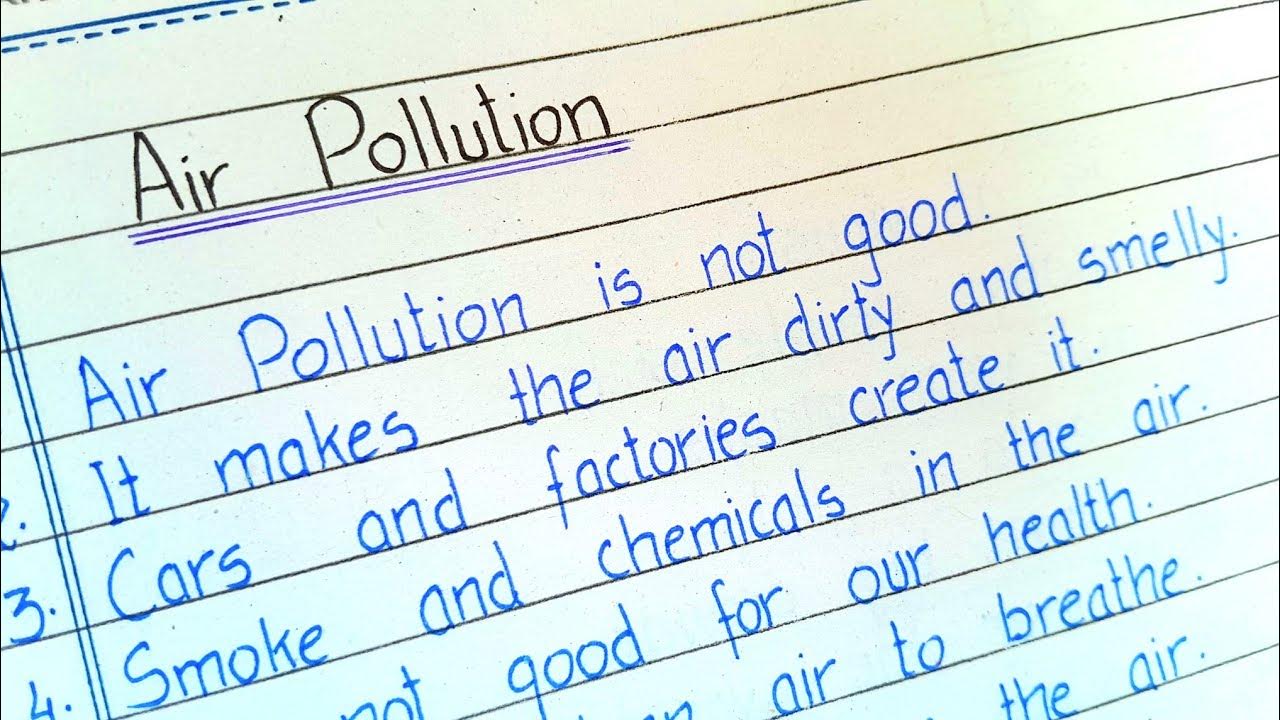 Air Pollution
Air Pollution is not good.
2. It makes the air dirty and smelly.
3. Cars and factories create it.
4. Smoke and chemicals in the air.
not good for our health.
air to breathe.
the air.